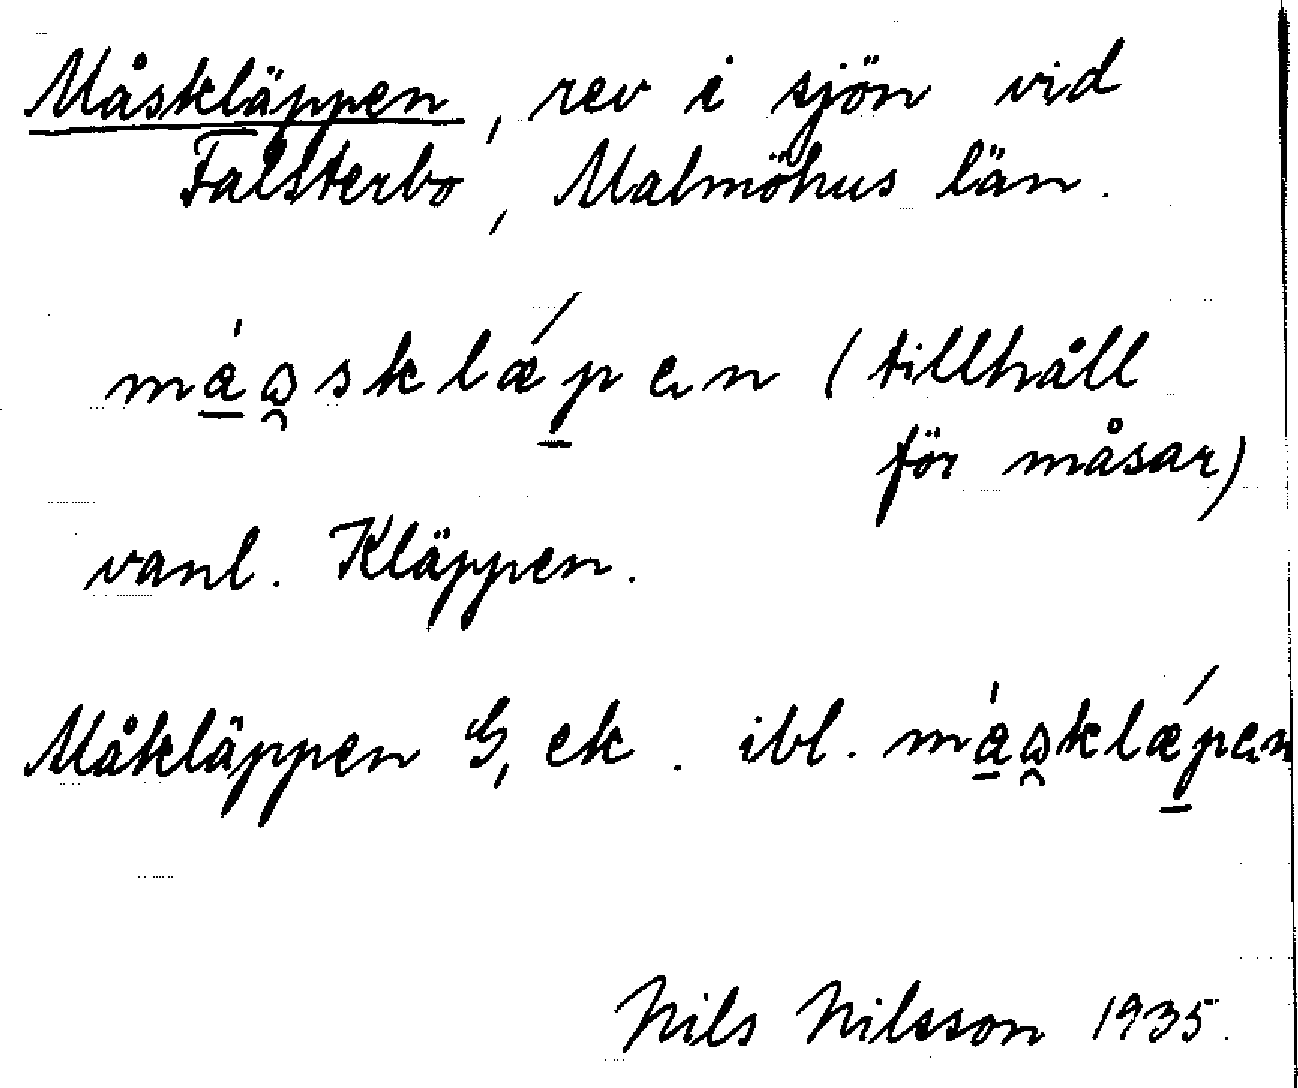 Måskläppen, rev i sjön vid
Falsterbo, Malmöhus län.
máɷ̯sklǽpen (tillhåll
för måsar)
vanl. Kläppen.
Måkläppen G, ek. ibl. máɷ̯sklǽpen
Nils Nilsson 1935.